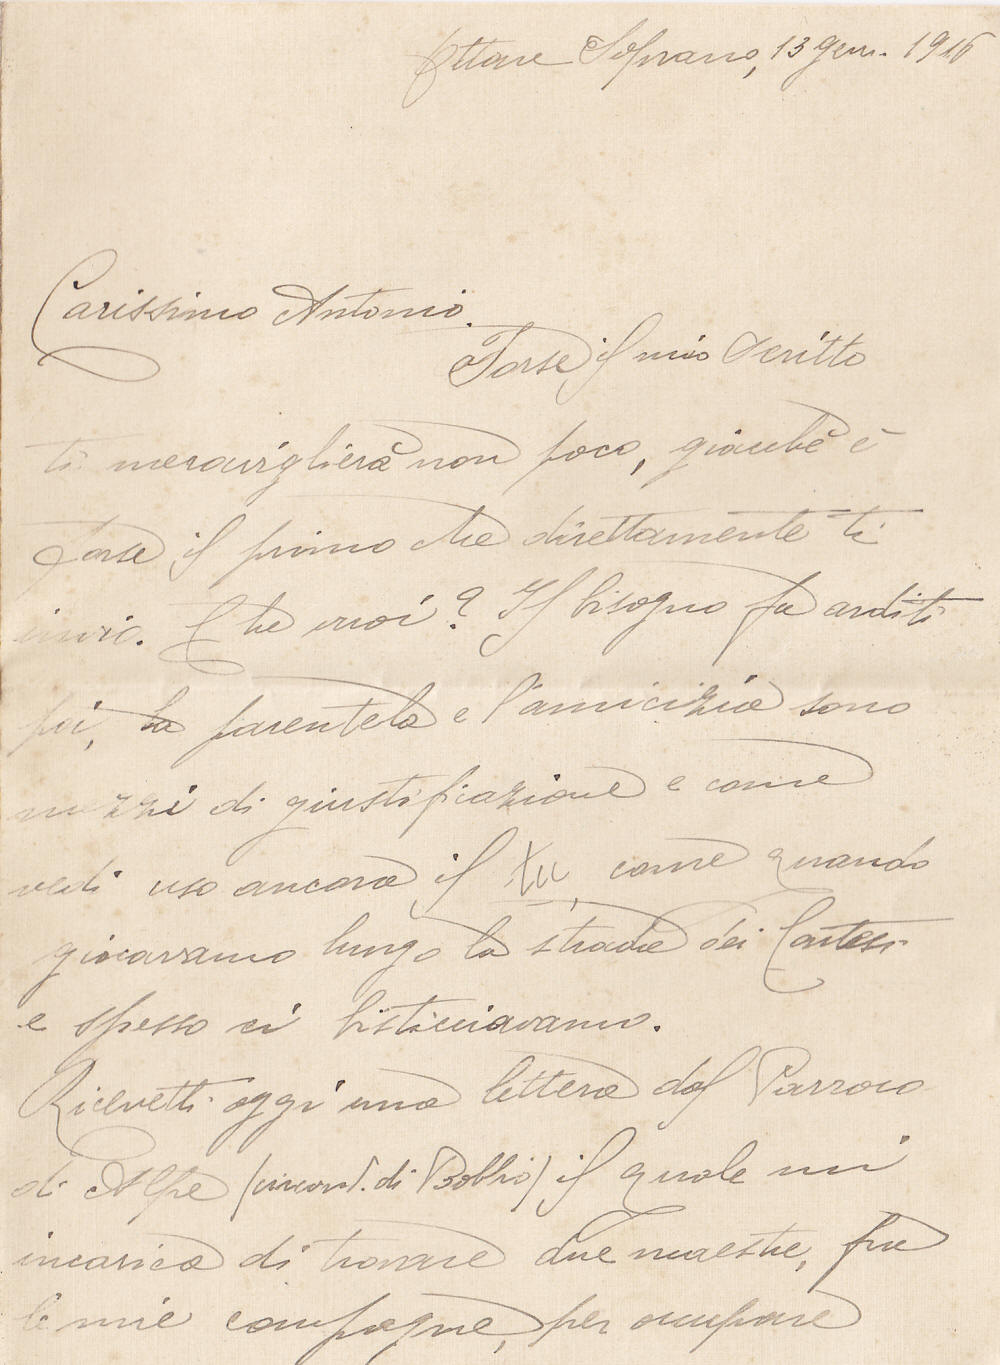 Ottone Soprano, 13 genn. 1916
Carissimo Antonio.
Forse il mio scritto
ti meraviglierà non poco, giacchè è
forse il primo che direttamente ti
invio. Che vuoi? Il bisogno fa arditi
poi, la parentela e l'amicizia sono
mezzi di giustificazione e come
vedi uso ancora il tu, come quando
giocavamo lungo la strada dei
e spesso ci bisticciavamo.
Ricevetti oggi una lettera dal Parroco
di Alpe (circond. di Bobbio) il quale mi
incarica di trovare due maestre, fra
le mie compagne, per occupare